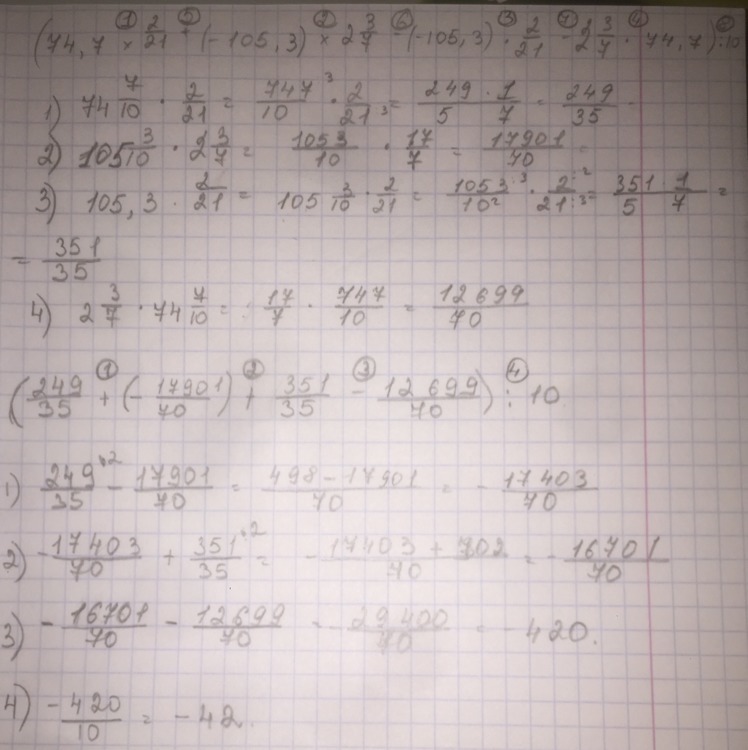 (74,7 × 2/21 + (-105,3) × 2 3/7 - (-105,3) · 2/21 - 2 3/7 · 74,7) : 10
1) 74 7/10 · 2/21 = 747/10 · 2/21 = 249 · 1/5 7 = 249/35
2) 105 3/10 · 2 3/7 = 1053/10 · 17/7 = 17901/70 =
3) 105,3 · 2/21 = 105 3/10 · 2/21 = 1053:3/10 2 · 2:2/21:3 = 351 · 1/5 7 =
= 351/35
4) 2 3/7 · 74 7/10 = 17/7 · 747/10 = 12699/70
(249/35 + (- 17901/70) + 351/35 - 12699/70) : 10
1) 249·2/35 - 17901/70 = 498 - 17901/70 = - 17403/70
2) - 17403/70 + 351·2/35 = - 17403 + 702/70 = - 16701/70
3) - 16701/70 - 12699/70 = - 29400/70 = - 420.
4) - 420/10 = - 42.